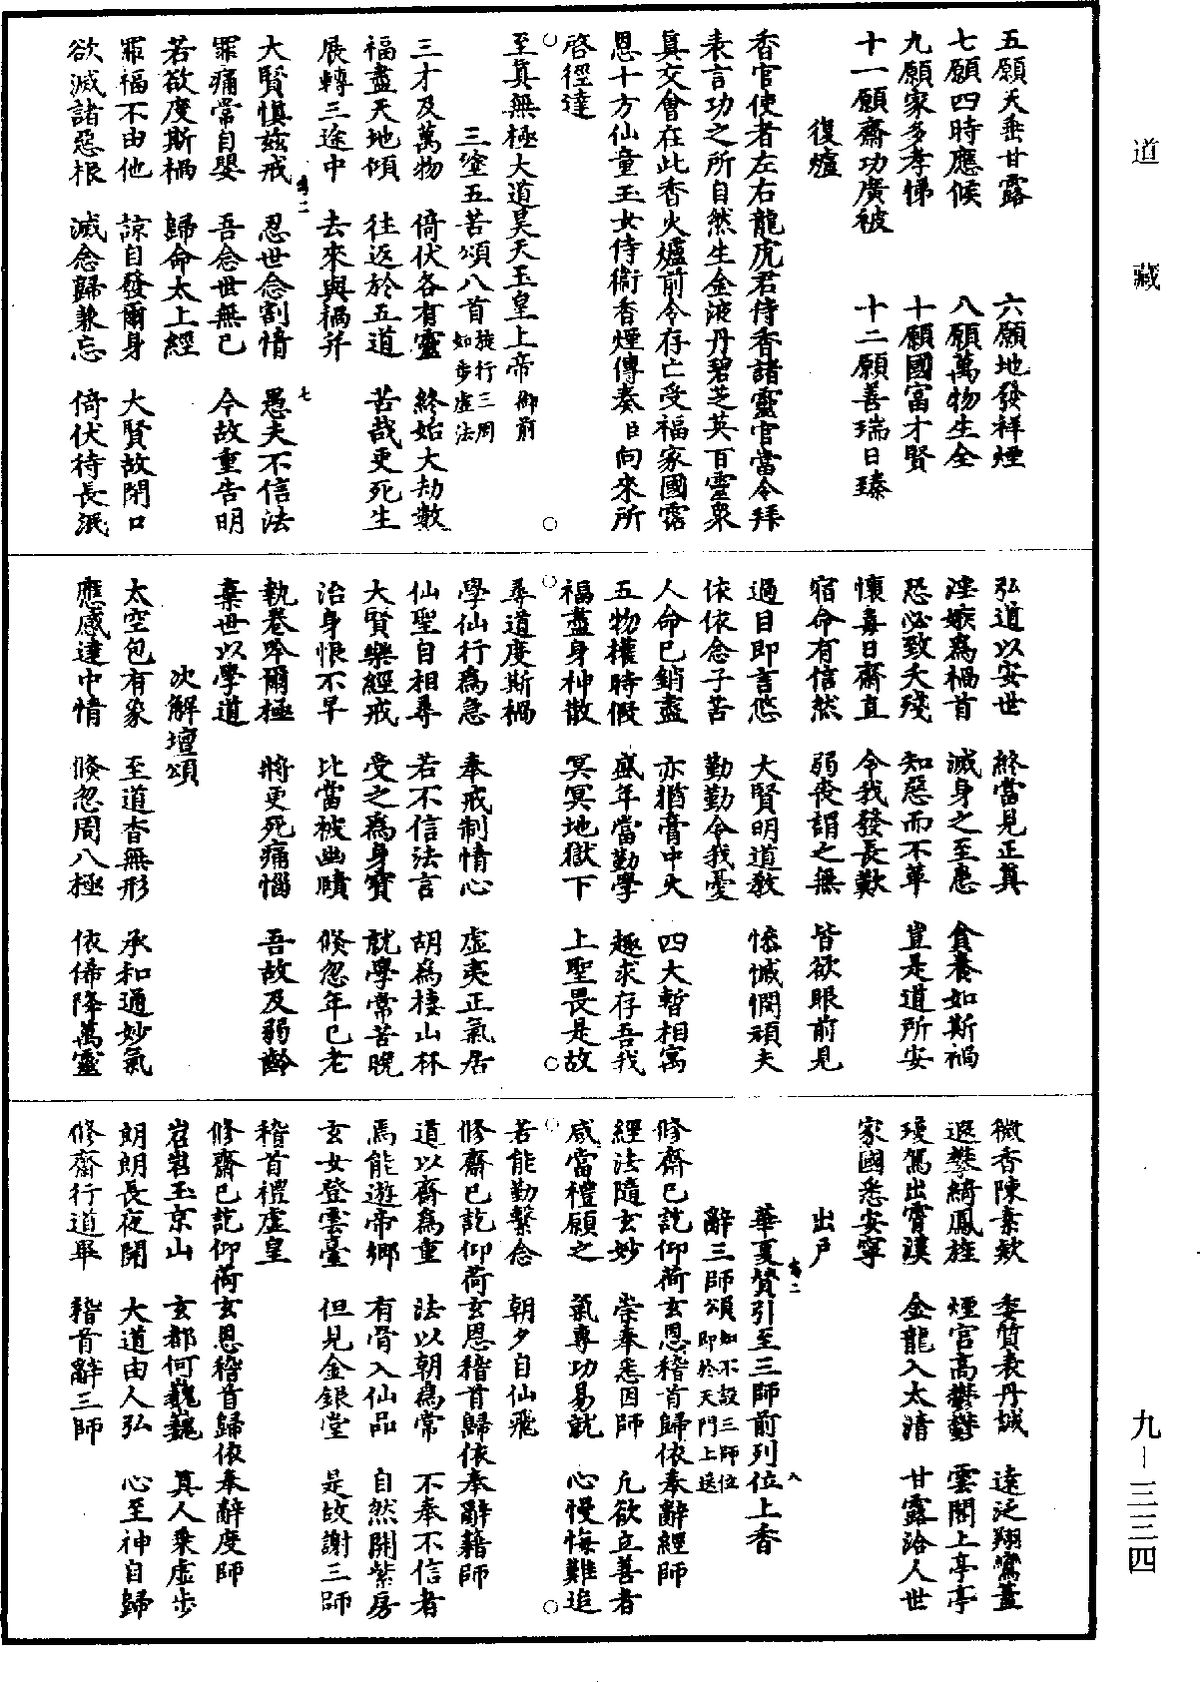 道藏
五願天垂甘露　六願地發祥煙
七願四時應候　八願萬物生全
九願家多孝悌　十願國富才賢
十一願齋功廣被　十二願善瑞日臻
復爐
香官使者左右龍虎君侍香諸靈官當令拜
表言功之所自然生金液丹碧芝英百靈衆
真交會在此香火爐前令存亡受福家國霑
恩十方仙童玉女侍衛香煙傳奏臣向來所
啓徑達
至真無極大道昊天玉皇上帝御前
三塗五苦頌八首旋行三周如步虛法
三才及萬物　倚伏各有靈　終始大劫數
福盡天地傾　往返於五道　苦哉更死生
展轉三途中　去來與禍并
大賢慎茲戒　忍世念割情　愚夫不信法
罪痛常自嬰　吾念世無已　今故重告明
若欲度斯禍　歸命太上經
罪福不由他　諒自發爾身　大賢故閉口
欲滅諸惡根　滅念歸兼忘　倚伏待長泯
七
弘道以安世　終當見正真
淫嫉爲禍首　滅身之至患　貪養如斯禍
恐必致夭殘　知惡而不革　豈是道所安
懷毒日齋直　令我發長歎
宿命有信然　弱喪謂之無　皆欲眼前見
過目即言悠　大賢明道教　愍慽惘頑夫
依依念子苦　勤勤令我憂
人命已銷盡　亦猶膏中火　四大暫相寓
五物權時假　盛年當勤學　趣求存吾我
福盡身神散　冥冥地獄下　上聖畏是故
尋道度斯禍
學仙行爲急　奉戒制情心　虛夷正氣居
仙聖自相尋　若不信法言　胡爲棲山林
大賢樂經戒　受之爲身寶　就學常苦晚
治身恨不早　比當被幽賾　倏忽年已老
執卷吟爾極　將更死痛惱　吾故及弱齡
棄世以學道
次解壇頌
太空包有象　至道杳無形　承和通妙氣
應感達中情　倏忽周八極　依俙降萬靈
微香陳素欵　委質表丹誠　遠泛翔鸞蓋
遐攀綺鳳旌　煙宮高鬱鬱　雲閣上亭亭
瓊駕出霄漢　金龍入太清　甘露洽人世
家國悉安寧
出戶
華夏贊引至三師前列位上香
八
辭三師頌如不設三師位即於天門上送
修齋已訖仰荷玄恩稽首歸依奉辭經師
經法隨玄妙　崇奉悉因師　凡欲立善者
咸當禮願之　氣專功易就　心慢悔難追
若能勤繫念　朝夕自仙飛
修齋已訖仰荷玄恩稽首歸依奉辭籍師
道以齋爲重　法以朝爲常　不奉不信者
焉能遊帝鄉　有骨入仙品　自然開紫房
玄女登雲臺　但見金銀堂　是故謝三師
稽首禮虛皇
修齋已訖仰荷玄恩稽首歸依奉辭度師
岧岧玉京山　玄都何巍巍　真人乘虛步
朗朗長夜開　大道由人弘　心至神自歸
修齋行道畢　稽首辭三師
九－三三四